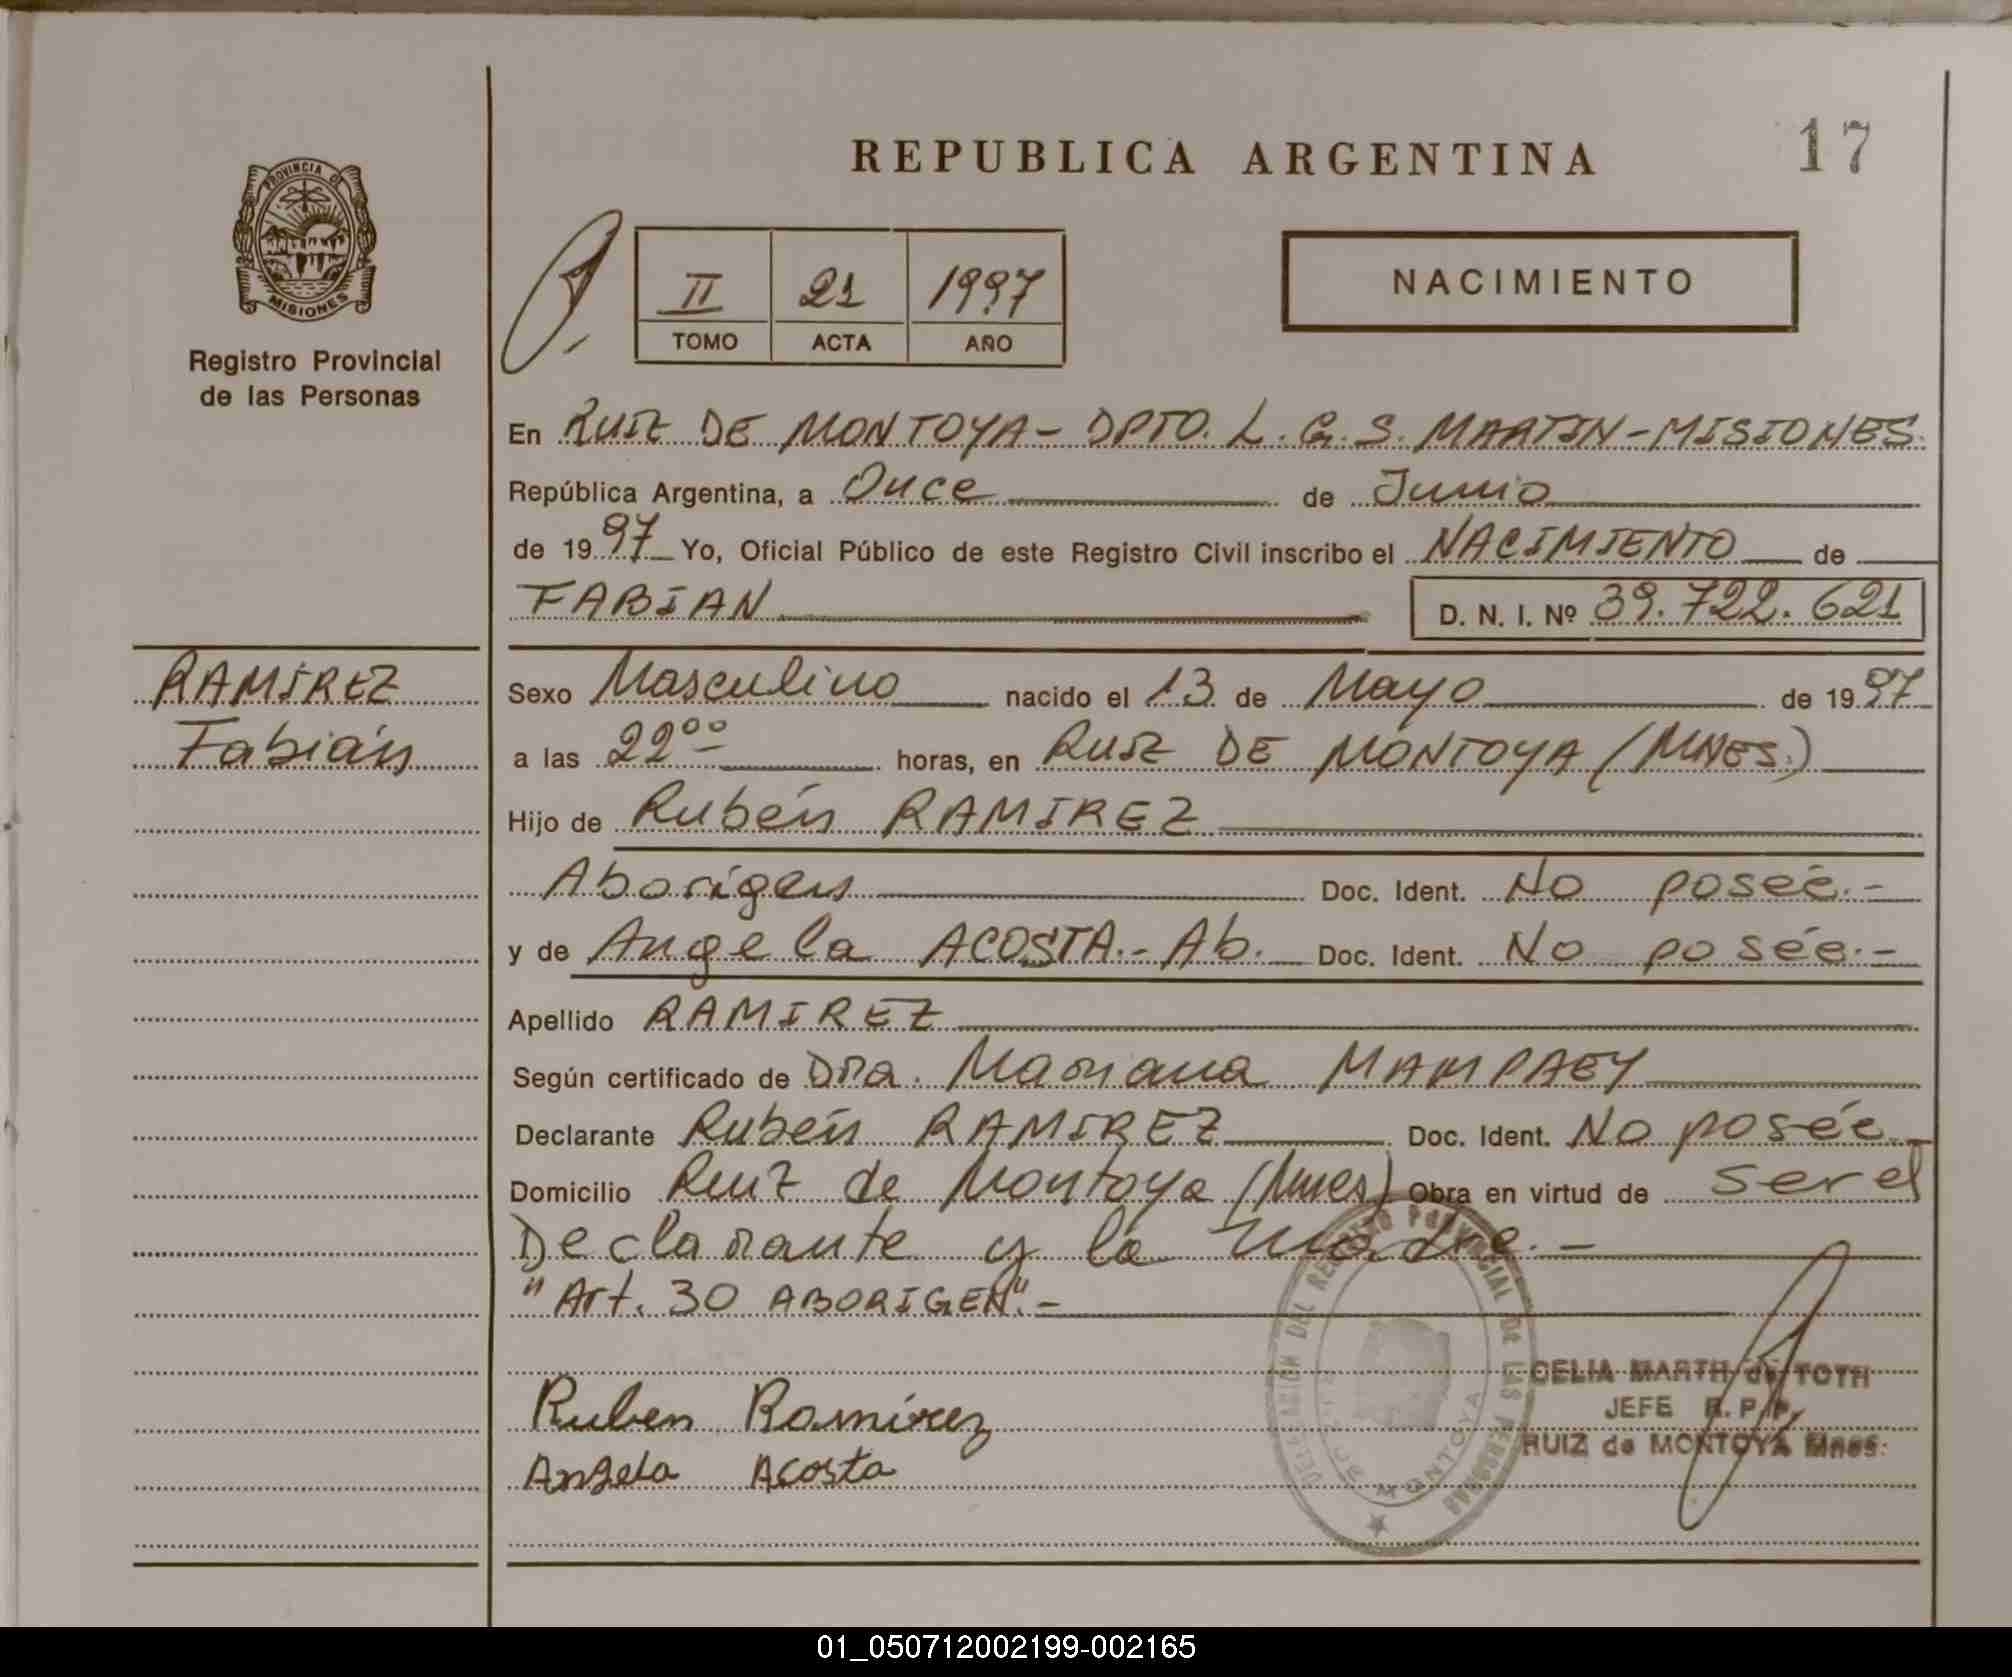 REPUBLICA ARGENTINA
17
PROVINCIA DE
MISIONES
Registro Provincial
de las Personas
II 21 1997
TOMO ACTA AÑO
NACIMIENTO
En RUIZ DE MONTOYA - DPTO. L. G. S. MARTIN - MISIONES.
República Argentina, a Once de Junio
de 1997 Yo, Oficial Público de este Registro Civil inscribo el NACIMIENTO de
FABIAN D. N. I. Nº 39.722.621
RAMIREZ
Fabián
Sexo Masculino nacido el 13 de Mayo de 1997
a las 22ºº horas, en RUIZ DE MONTOYA (MNES.)
Hijo de Rubén RAMIREZ
Aborígen Doc. Ident. No poseé.-
y de Angela ACOSTA.- Ab. Doc. Ident. No poseé.-
Apellido RAMIREZ
Según certificado de Dra. Mariana MAMPAEY
Declarante Rubén RAMIREZ Doc. Ident. No poseé.-
Domicilio Ruiz de Montoya (Mnes) Obra en virtud de ser el
Declarante y la madre.-
"Art. 30 ABORIGEN".-
Ruben Ramirez
Angela Acosta
DELEGACION DEL REGISTRO PROVINCIAL DE LAS PERSONAS
RUIZ DE MONTOYA
CELIA MARTH de TOTH
JEFE R. P. P.
RUIZ de MONTOYA Mnes.
01_050712002199-002165